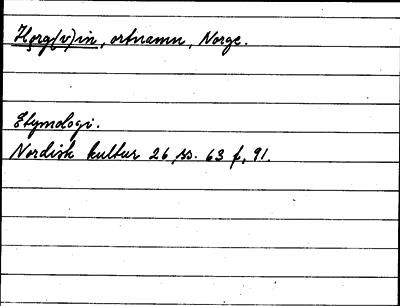 Hǫrg(v)in, ortnamn, Norge.
Etymologi.
Nordisk kultur 26, ss. 63 f, 91.